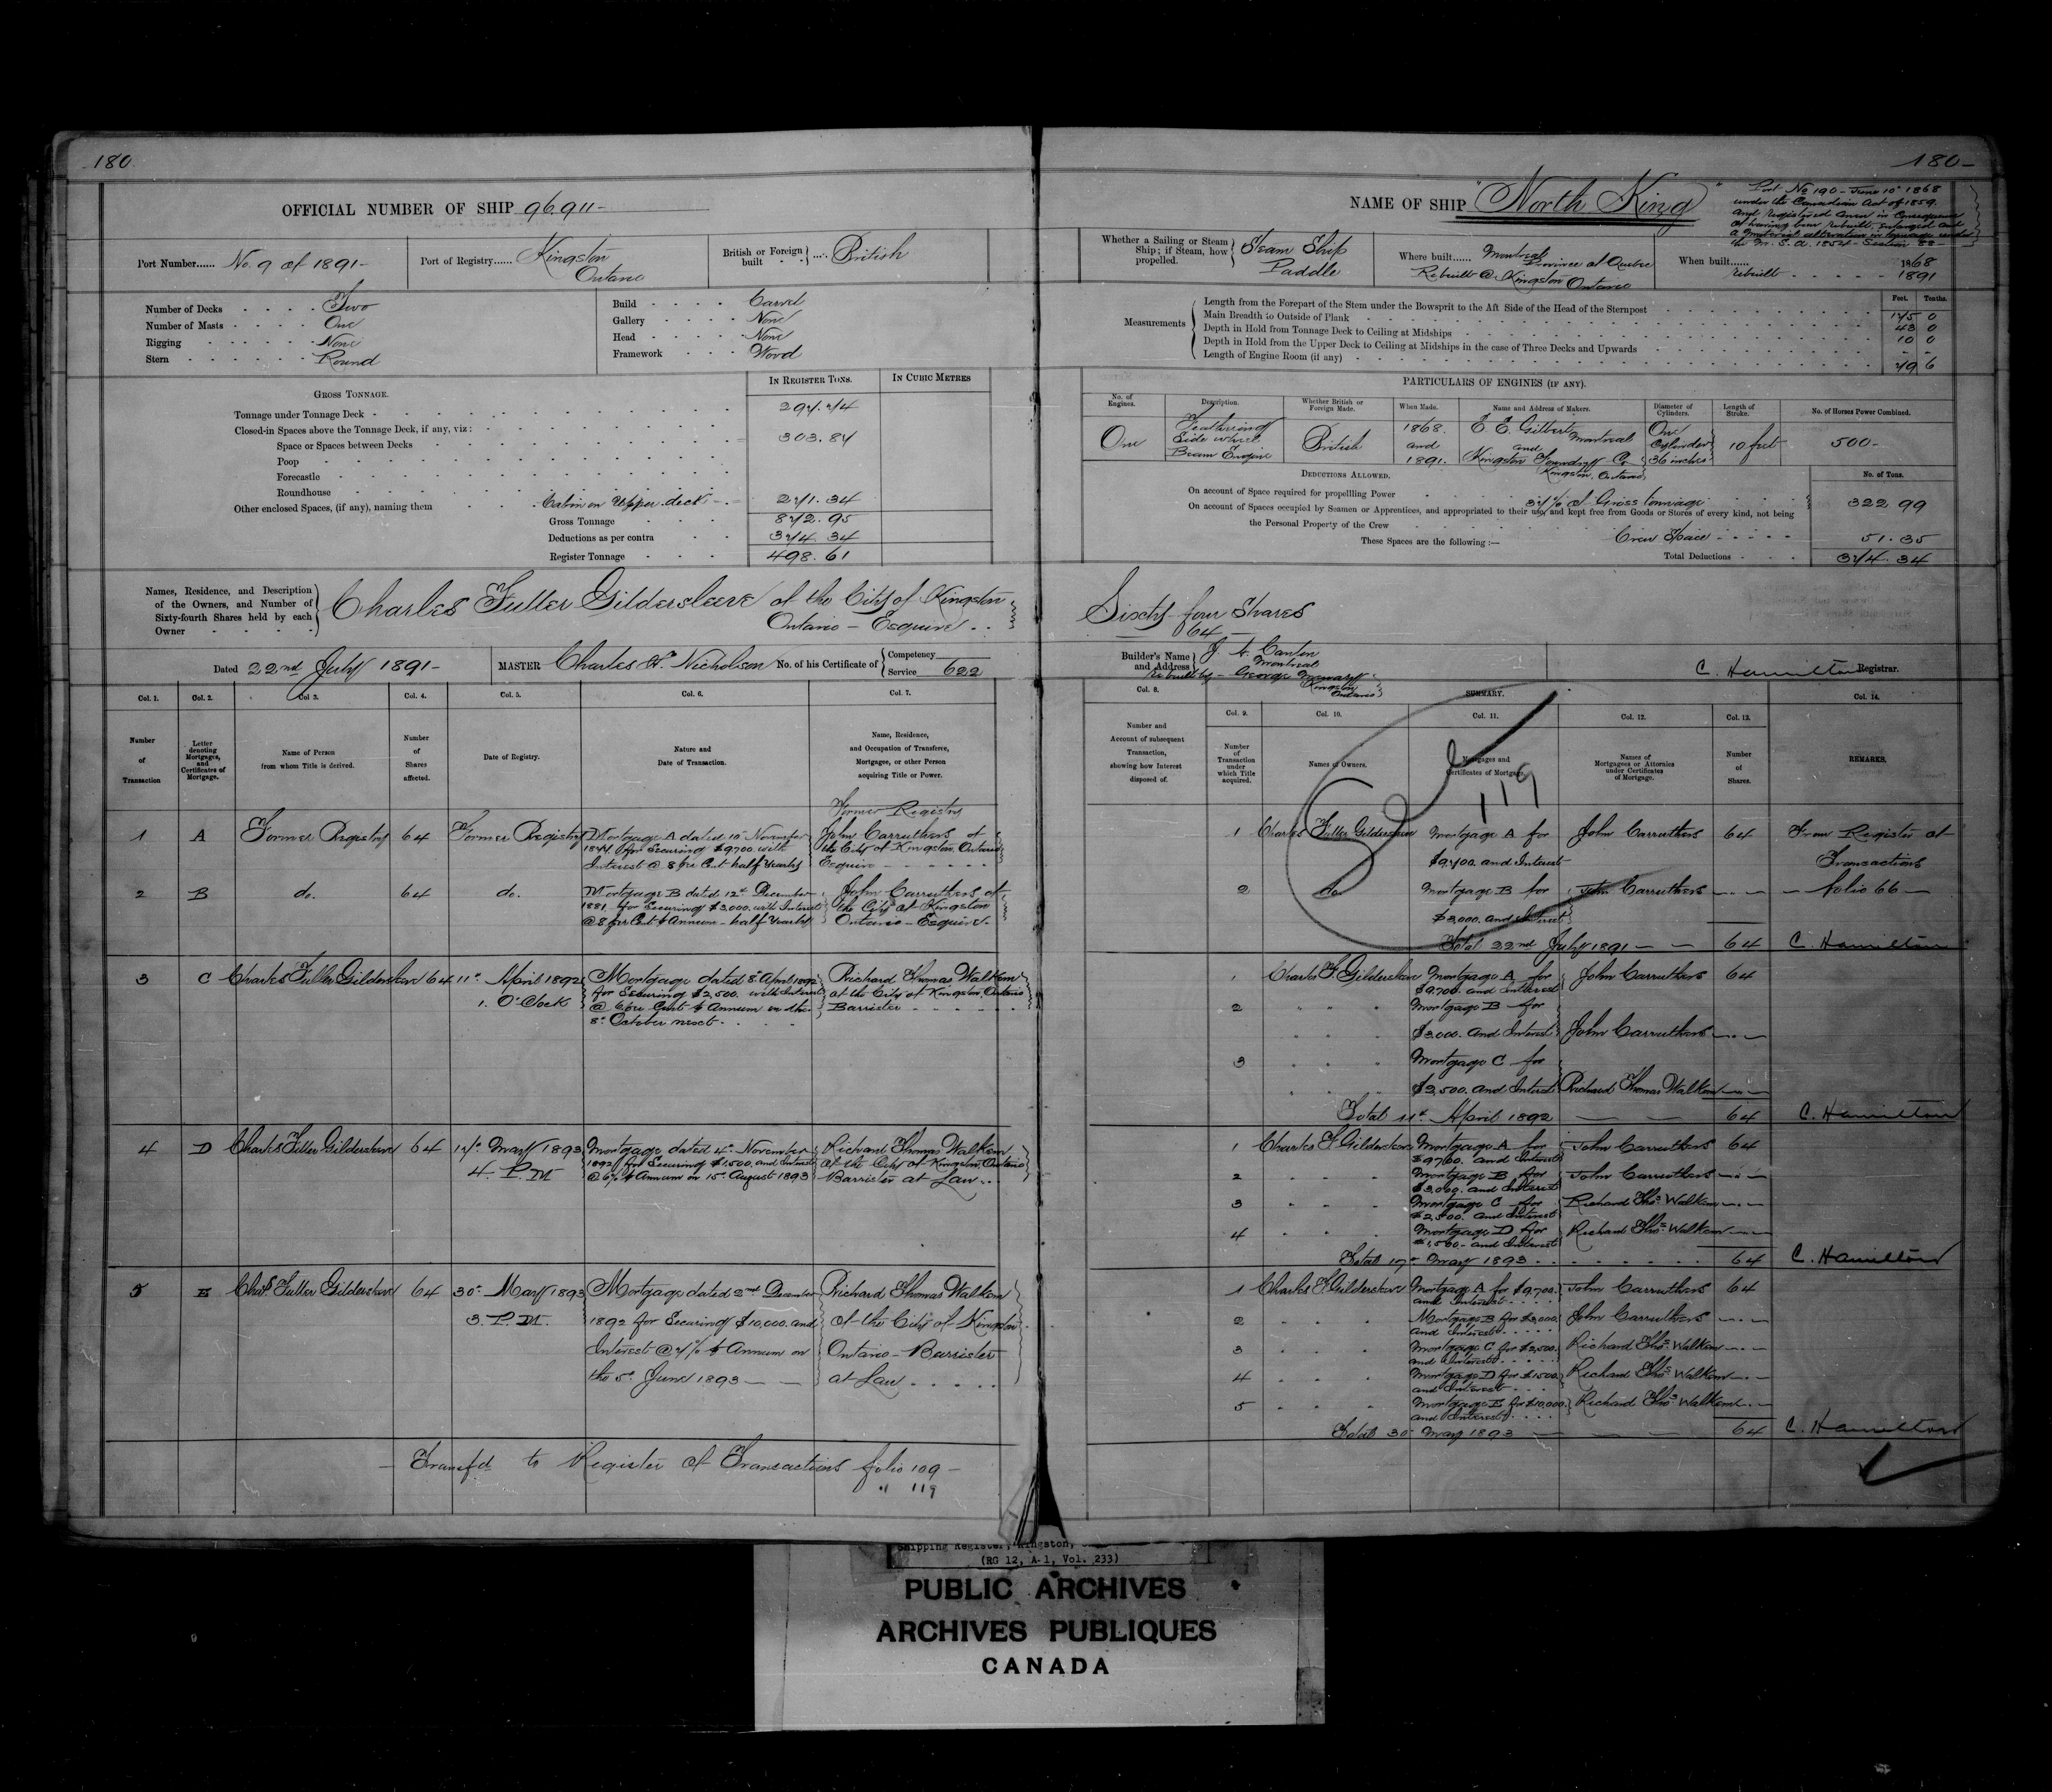 180
OFFICIAL NUMBER OF SHIP 96.911-
Port Number...... No. 9 of 1891-
Port of Registry...... Kingston
Ontario
British or Foreign
built - - } .... British
Number of Decks - - - - Two
Number of Masts - - - - One
Rigging - - - - None
Stern - - - - Round
Build - - - - Carvel
Gallery - - - - None
Head - - - - None
Framework - - - Wood
GROSS TONNAGE.
IN REGISTER TONS.
IN CUBIC METRES
Tonnage under Tonnage Deck - 297.74
Closed-in Spaces above the Tonnage Deck, if any, viz:
Space or Spaces between Decks 303.87
Poop
Forecastle
Roundhouse
Other enclosed Spaces, (if any), naming them Cabin on Upper deck - 271.34
Gross Tonnage 872.95
Deductions as per contra 374.34
Register Tonnage 498.61
Names, Residence, and Description
of the Owners, and Number of
Sixty-fourth Shares held by each
Owner
Charles Fuller Gildersleeve of the City of Kingston
Ontario - Esquire - -
Dated 22nd July 1891-
MASTER Charles H. Nicholson No. of his Certificate of { Competency
Service 622
Col. 1.
Col. 2.
Col 3.
Col. 4.
Col. 5.
Col. 6.
Col. 7.
Number
of
Transaction
Letter
denoting
Mortgages,
and
Certificates of
Mortgage.
Name of Person
from whom Title is derived.
Number
of
Shares
affected.
Date of Registry.
Nature and
Date of Transaction.
Name, Residence,
and Occupation of Transferee,
Mortgagee, or other Person
acquiring Title or Power.
Former Registry
1 A Former Registry 64 Former Registry Mortgage A dated 10 November John Carruthers of
for Securing $9700. with the City of Kingston, Ontario
Interest @ 8 per Cent half Yearly Esquire - - - -
2 B do. 64 do. Mortgage B dated 12th December John Carruthers of
1881 for Securing $3,000. with Interest the City of Kingston
@ 8 per Cent ⅌ Annum - half Yearly Ontario - Esquire -
3 C Charles Fuller Gildersleeve 64 11th April 1892 Mortgage dated 8th April 1892 Richard Thomas Walkem
1. O'Clock for Securing $2,500. with Interest of the City of Kingston, Ontario
@ 6 per Cent ⅌ Annum on the Barrister - - - -
8th October next - -
4 D Charles Fuller Gildersleeve 64 17th May 1893 Mortgage dated 4th November Richard Thomas Walkem
4. P.M 1892 for Securing $1500. and Interest of the City of Kingston, Ontario
@ 6% ⅌ Annum on 15th August 1893 Barrister at Law - -
5 E Chas Fuller Gildersleeve 64 30th May 1893 Mortgage dated 2nd December Richard Thomas Walkem
3. P.M. 1892 for Securing $10,000. and of the City of Kingston
Interest @ 7% ⅌ Annum on Ontario - Barrister
the 5th June 1893 - - at Law - - - -
Transf'd to Register of Transactions folio 109 -
" 119
180-
NAME OF SHIP "North King"
Port No 190 - June 10th 1868
under the Canadian Act of 1859.
and registered anew in Consequence
of having been rebuilt, enlarged and
a material alteration in tonnage under
the M. S. A. 1854 - Section 88 -
Whether a Sailing or Steam
Ship; if Steam, how
propelled.
Steam Ship
Paddle
Where built...... Montreal
Province of Quebec
Rebuilt @ Kingston Ontario
When built...... 1868
rebuilt - - - - - 1891
Feet. Tenths.
Measurements
Length from the Forepart of the Stem under the Bowsprit to the Aft Side of the Head of the Sternpost 175 0
Main Breadth to Outside of Plank 43 0
Depth in Hold from Tonnage Deck to Ceiling at Midships 10 0
Depth in Hold from the Upper Deck to Ceiling at Midships in the case of Three Decks and Upwards - -
Length of Engine Room (if any) 49 6
PARTICULARS OF ENGINES (IF ANY).
No. of
Engines.
Description.
Whether British or
Foreign Made.
When Made.
Name and Address of Makers.
Diameter of
Cylinders.
Length of
Stroke.
No. of Horses Power Combined.
One
Feathering
Side wheel
Beam Engine
British
1868.
and
1891.
E. E. Gilbert Montreal
and
Kingston Foundry Co
Kingston, Ontario
One
Cylinder
36 inches
10 feet
500-
DEDUCTIONS ALLOWED.
No. of Tons.
On account of Space required for propellling Power 37% of Gross tonnage 322 99
On account of Spaces occupied by Seamen or Apprentices, and appropriated to their use, and kept free from Goods or Stores of every kind, not being
the Personal Property of the Crew
These Spaces are the following :— Crew Space - - - - - 51. 35
Total Deductions - - - 374. 34
Sixty-four Shares
64 -
Builder's Name
and Address
Montreal
rebuilt by - George
Kingston
Ontario
C. Hamilton Registrar.
Col. 8.
SUMMARY.
Col. 14.
Col. 9.
Col. 10.
Col. 11.
Col. 12.
Col. 13.
Number and
Account of subsequent
Transaction,
showing how Interest
disposed of.
Number
of
Transaction
under
which Title
acquired.
Names of Owners.
Mortgages and
Certificates of Mortgage.
Names of
Mortgagees or Attornies
under Certificates
of Mortgage.
Number
of
Shares.
REMARKS.
119
1 Charles Fuller Gildersleeve Mortgage A for John Carruthers 64 From Register of
$9,700. and Interest Transactions
2 do. Mortgage B for John Carruthers - " - - folio 66 -
$3,000. and Interest
Total 22nd July 1891 - - 64 C. Hamilton
1 Charles F. Gildersleeve Mortgage A for John Carruthers 64
$9,700. and Interest
2 " " " Mortgage B for
$3,000. and Interest John Carruthers - " -
3 Mortgage C for
$2,500. and Interest Richard Thomas Walkem - " -
Total 11th April 1892 - - 64 C. Hamilton
1 Charles F Gildersleeve Mortgage A for John Carruthers 64
$9,700. and Interest
2 Mortgage B for John Carruthers - " -
$3,000. and Interest
3 Mortgage C for Richard Thos Walkem - " -
$2,500. and Interest
4 Mortgage D for Richard Thos Walkem - " -
$1,500 - and Interest
Total 17th May 1893 - - - - 64 C. Hamilton
1 Charles F Gildersleeve Mortgage A for $9,700. John Carruthers 64
and Interest - - -
2 Mortgage B for $3,000. John Carruthers - " -
and Interest - - -
3 Mortgage C for $2,500. Richard Thos Walkem - " -
and Interest - - -
4 Mortgage D for $1500. Richard Thos Walkem - " -
and Interest - - -
5 Mortgage E for $10,000. Richard Thos Walkem - " -
and Interest - - -
Total 30 May 1893 - - - 64 C. Hamilton
Shipping Register, Kingston,
(RG 12, A-1, Vol. 233)
PUBLIC ARCHIVES
ARCHIVES PUBLIQUES
CANADA